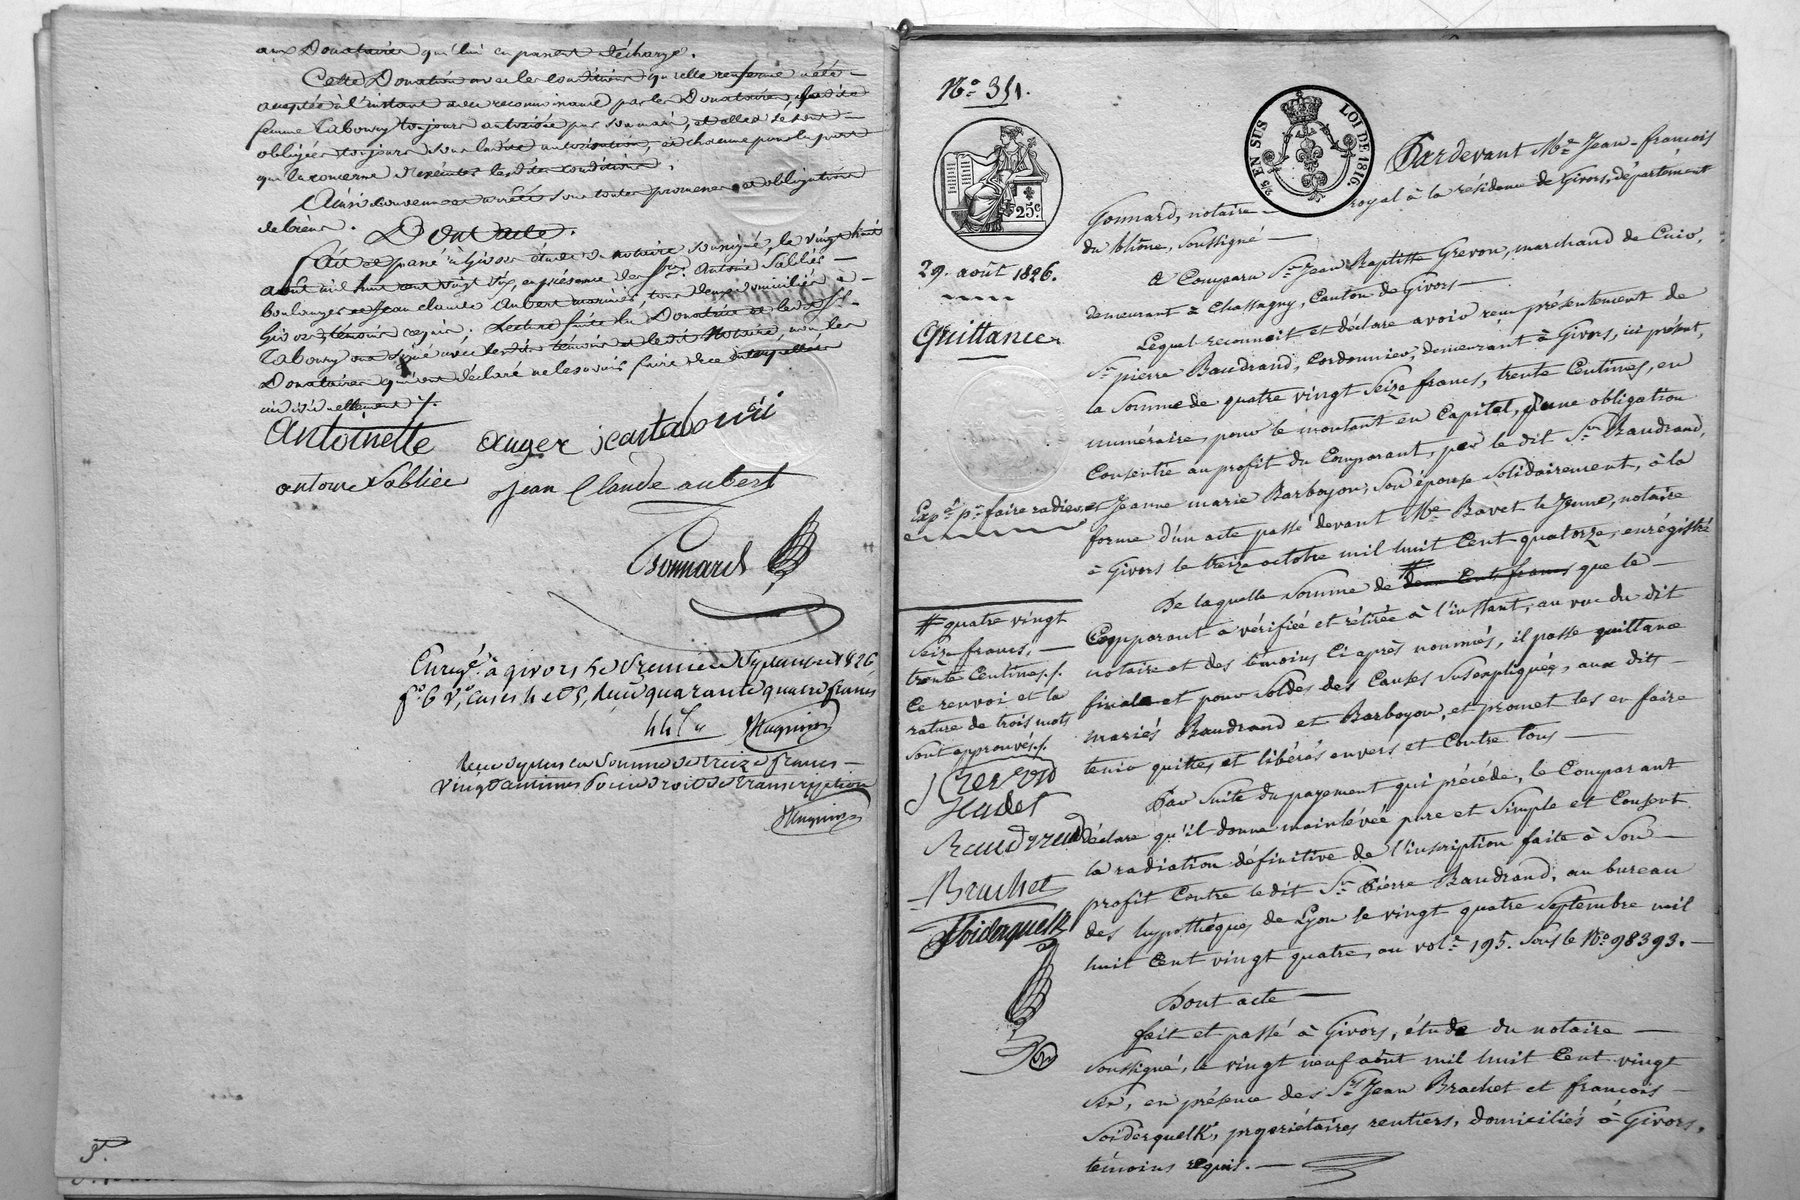 aux Donataires qui lui en passent décharge.
Cette Donation avec les conditions qu'elle renferme a été
acceptée à l'instant avec reconnaissance par les Donataires, ladite
femme Taboury toujours autorisée par son mari, et elles se sont
obligées toujours sous ladite autorisation, et chacune pour la part
qui la concerne d'exécuter lesdites conditions.
Ainsi convenu et arrêté sous toutes promesses et obligations
de biens. Dont acte.
fait et passé à Givors étude du notaire soussigné, le vingt huit
août mil huit cent vingt six, en présence des srs. Antoine Sablier
boulanger et Jean Claude Aubert marinier, tous deux domiciliés à
Givors, témoins requis. Lecture faite la Donatrice et les
Taboury ont signé avec lesdits témoins et le dit Notaire, non les
Donataires qui ont déclaré ne le savoir faire de ce interpellées
individuellement ./.
Antoinette auger jean tabouri
antoine Sablier Jean Claude aubert
Gonnard
Enregé. à givors le premier Septembre 1826
fo. 6 vo, cases 4 et 5, Reçu quarante quatre francs
Reçu de plus la somme de treize francs
vingt centimes pour droit de transcription
No. 351.
25 EN SUS LOI DE 1816.
25c.
29. août 1826.
Quittance
Expé. pr. faire radier
Pardevant Me. Jean-françois
Gonnard, notaire royal à la résidence de Givors, département
du Rhône, soussigné
A Comparu Sr. Jean Baptiste Grevon, marchand de Cuir,
demeurant à Chassagny, Canton de Givors
Lequel reconnait et déclare avoir reçu présentement de
Sr. pierre Baudrand, Cordonnier, demeurant à Givors, ici présent,
la Somme de quatre vingt Seize francs, trente Centimes, en
numéraire, pour le montant en Capital, d'une obligation
Consentie au profit du Comparant, par le dit Sr. Baudrand,
et Jeanne marie Barboyon, Son épouse solidairement, à la
forme d'un acte passé devant Me. Bavet le Jeune, notaire
à Givors le treize octobre mil huit Cent quatorze, enrégistré
De laquelle Somme de # deux Cents francs que le
Comparant a vérifiée et rétirée à l'instant, au vue du dit
notaire et des témoins Ci après nommés, il passe quittance
finale et pour Soldes des Causes Susexpliquées, aux dits
mariés Baudrand et Barboyon, et promet les en faire
tenir quittes et libérés envers et Contre tous
Par Suite du payement qui précéde, le Comparant
déclare qu'il donne mainlévée pure et Simple et Consent
la radiation définitive de l'inscription faite à Son
profit Contre le dit Sr. Pierre Baudrand, au bureau
des hypothéques de Lyon le vingt quatre Septembre mil
huit Cent vingt quatre, au vole. 195. Sous le No. 98393.
Dont acte
fait et passé à Givors, étude du notaire
Soussigné, le vingt neuf août mil huit Cent vingt
Six, en présence des Srs. Jean Brachet et françois
Soiderquelk, propriétaires rentiers, domiciliés à Givors,
témoins requis.
# quatre vingt
Seize francs,
trente Centimes ./.
Ce renvoi et la
rature de trois mots
sont approuvés ./.
Cadet
Baudrand
Brachet
Soiderquelk